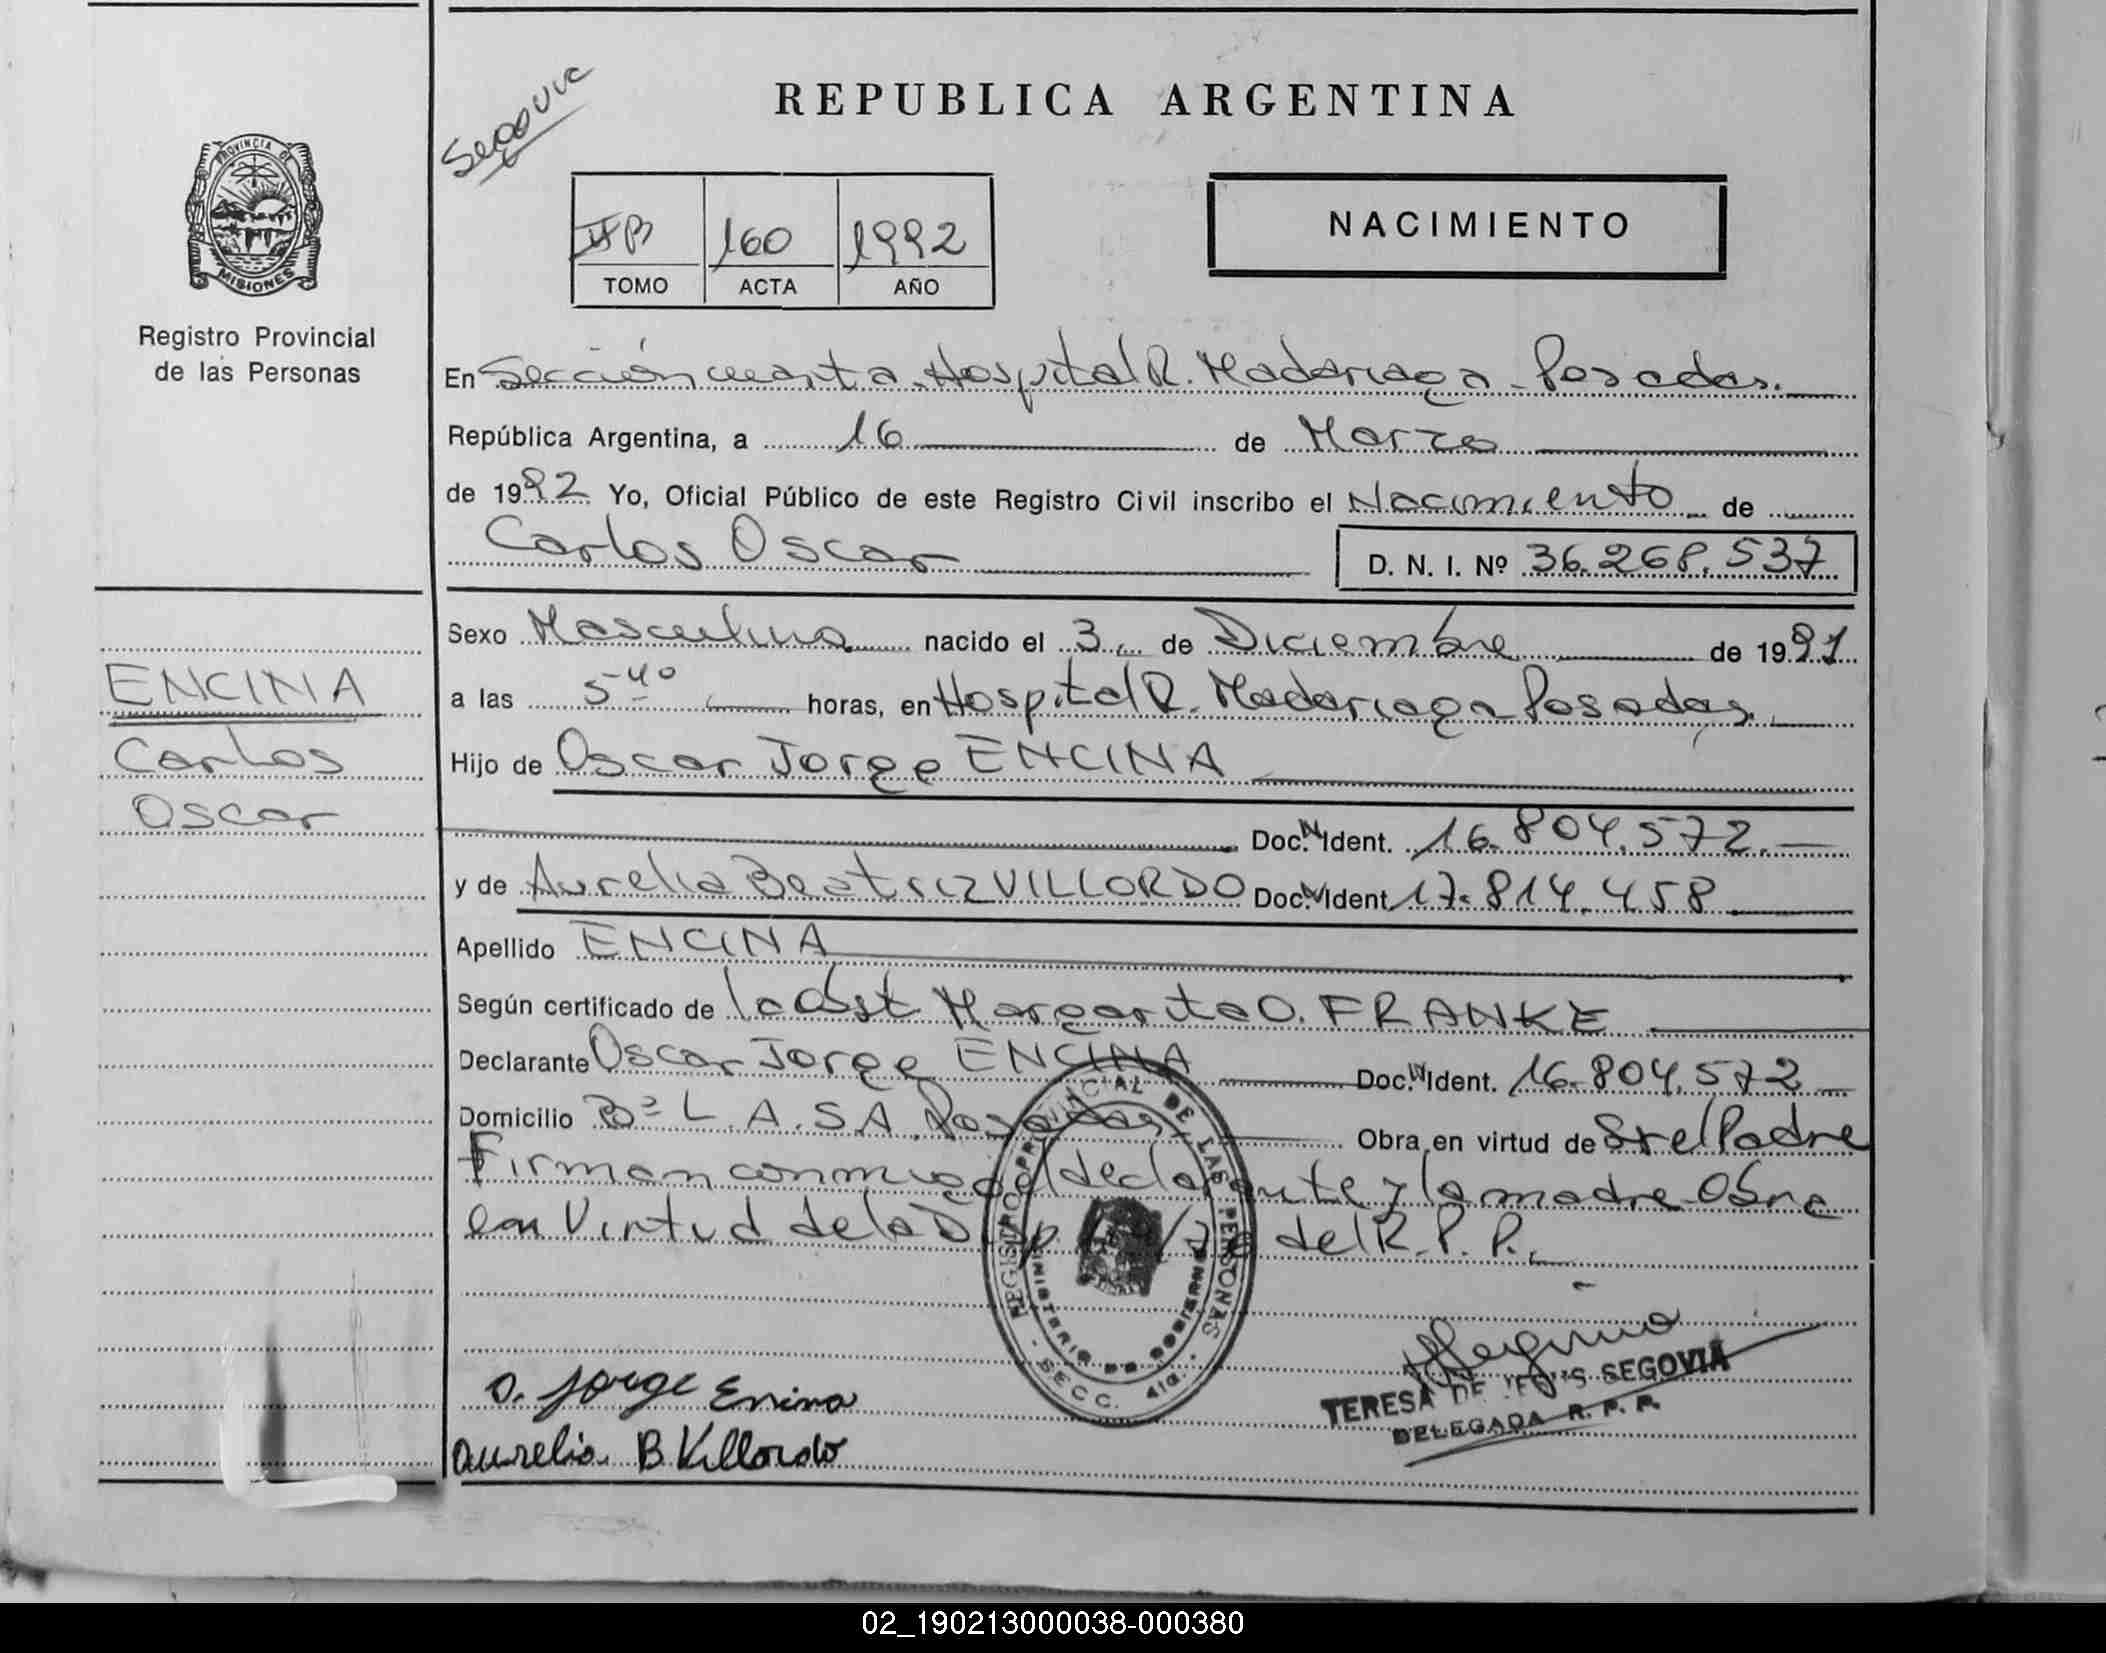 Segovia
REPUBLICA ARGENTINA
PROVINCIA DE
MISIONES
Registro Provincial
de las Personas
II B 160 1992
TOMO ACTA AÑO
NACIMIENTO
En Sección cuarta Hospital R. Madariaga - Posadas.
República Argentina, a 16 de Marzo
de 1992 Yo, Oficial Público de este Registro Civil inscribo el Nacimiento de
Carlos Oscar D. N. I. Nº 36.268.537
Sexo Masculino nacido el 3 de Diciembre de 1991
a las 5 40 horas, en Hospital R. Madariaga Posadas
Hijo de Oscar Jorge ENCINA
Doc. N Ident. 16.804.572.
y de Aurelia Beatriz VILLORDO Doc. N Ident 17.814.458
Apellido ENCINA
ENCINA
Carlos
Oscar
Según certificado de la Obst Margarita O. FRANKE
Declarante Oscar Jorge ENCINA Doc. N Ident. 16.804.572
Domicilio Bº L.A.S.A. Posadas Obra en virtud de Ser el Padre
Firman conmigo el declarante y la madre Obra
en Virtud de la del R. P. P.
REGISTRO PROVINCIAL DE LAS PERSONAS
MINISTERIO DE GOBIERNO
- SECC. 4ta. -
O. Jorge Encina
Aurelia B Villordo
TERESA DE JESUS SEGOVIA
DELEGADA R. P. P.
02_190213000038-000380